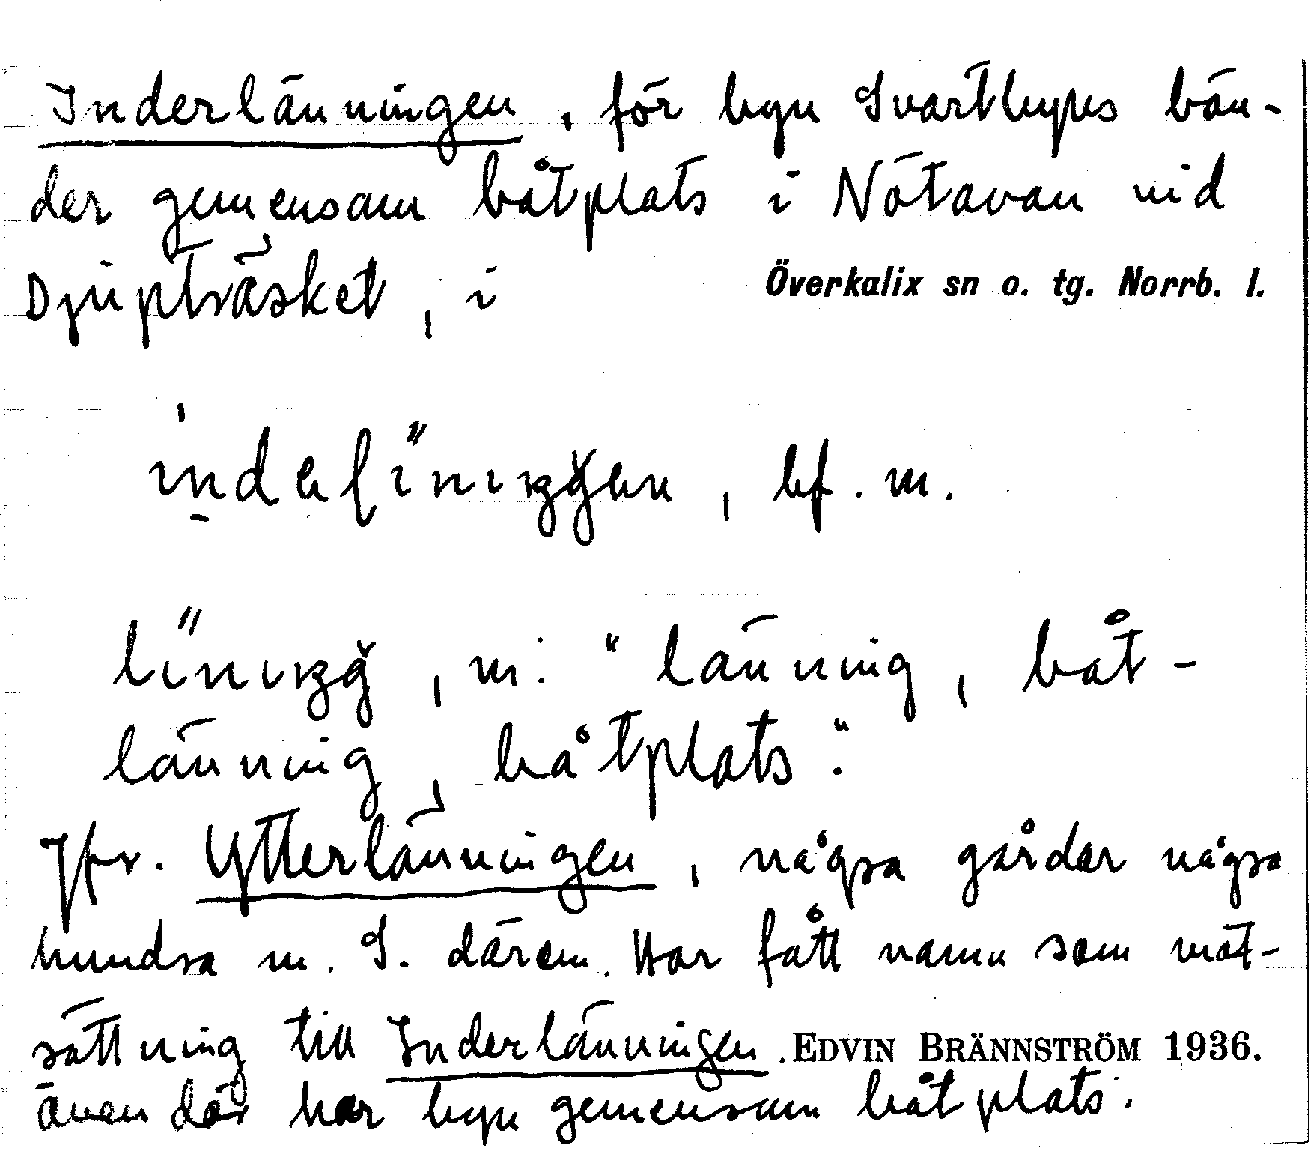 Inderlänningen, för byn Svartbyns bön-
der gemensam båtplats i Nötavan vid
Djupträsket, i Överkalix sn o. tg. Norrb. l.
bf. m.
m. "länning, båt-
länning, båtplats".
Jfr. Ytterlänningen, några gårdar några
hundra m. S. därom. Har fått namn som mot-
sättning till Inderlänningen. EDVIN BRÄNNSTRÖM 1936.
även där har byn gemensam båtplats.